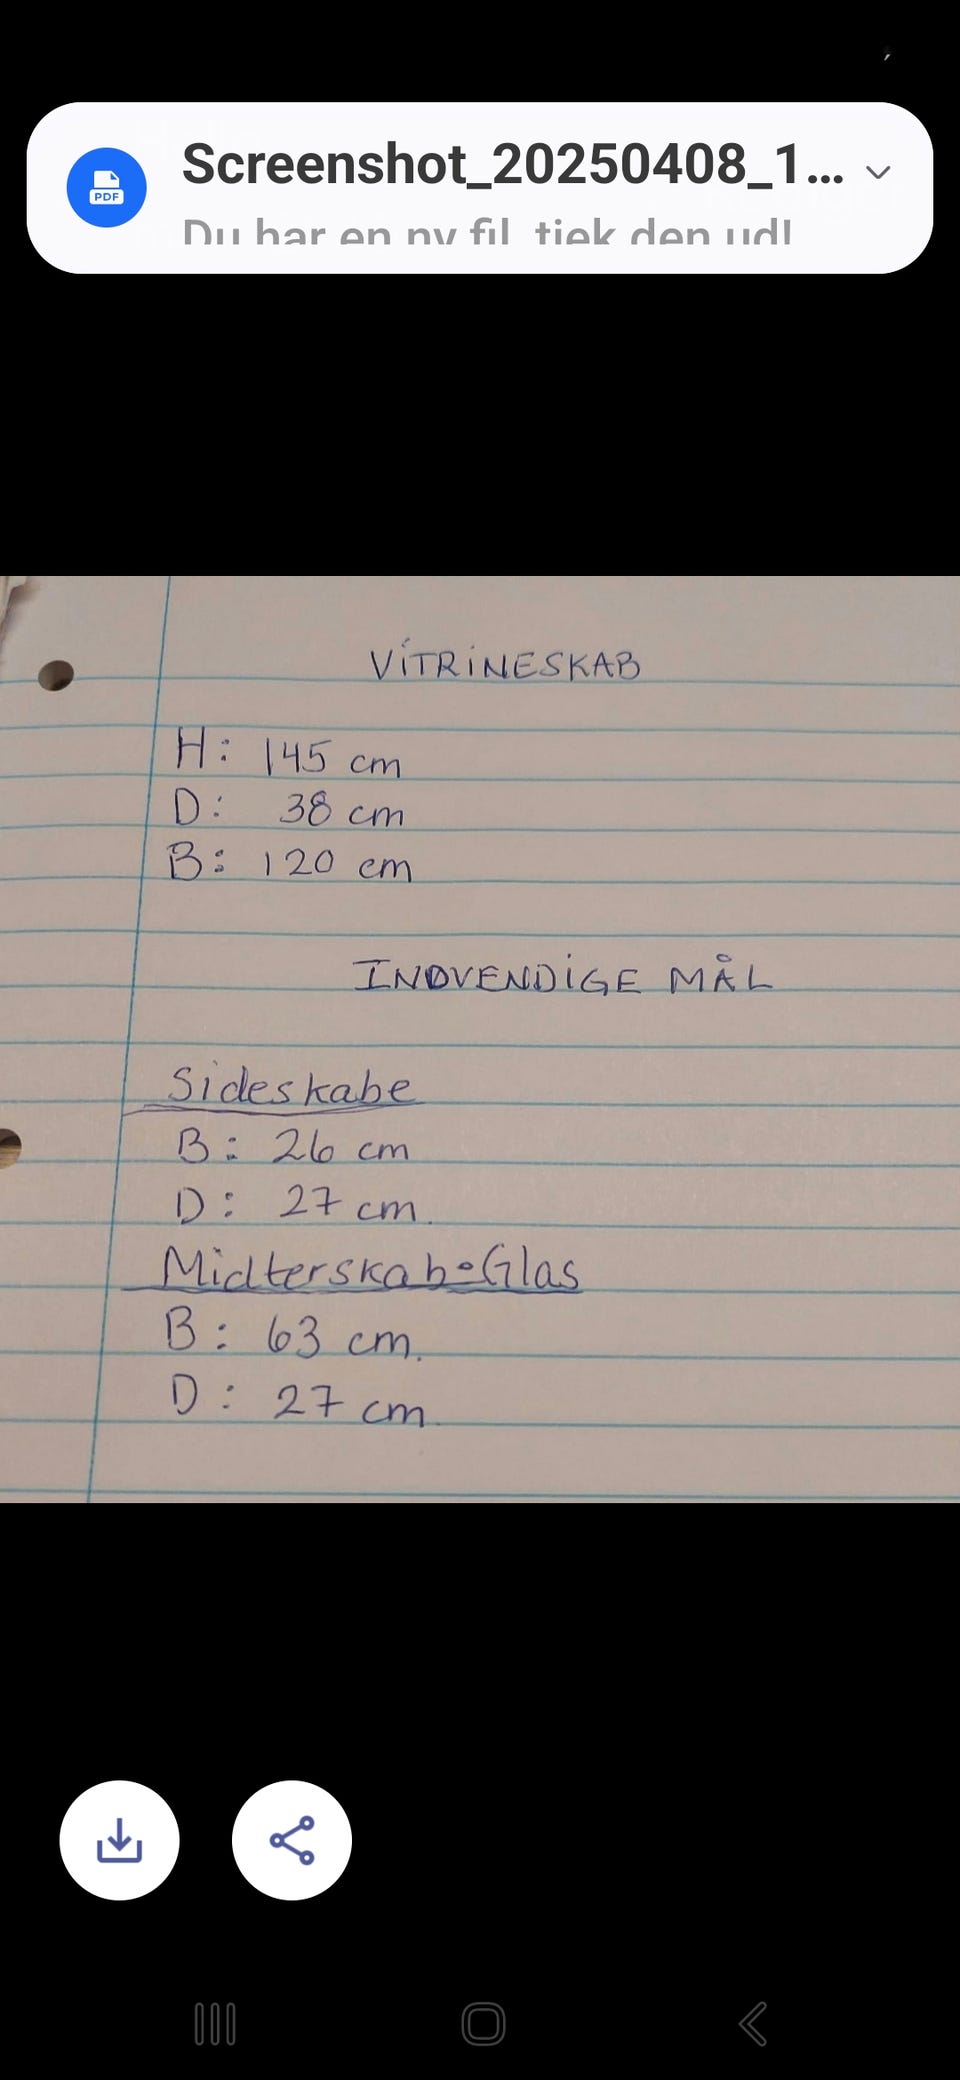 Screenshot_20250408_1...
PDF
Du har en ny fil, tjek den ud!
VITRINESKAB
H: 145 cm
D: 38 cm
B: 120 cm
INDVENDIGE MÅL
Sideskabe
B: 26 cm
D: 27 cm.
Midterskab-Glas
B: 63 cm.
D: 27 cm.